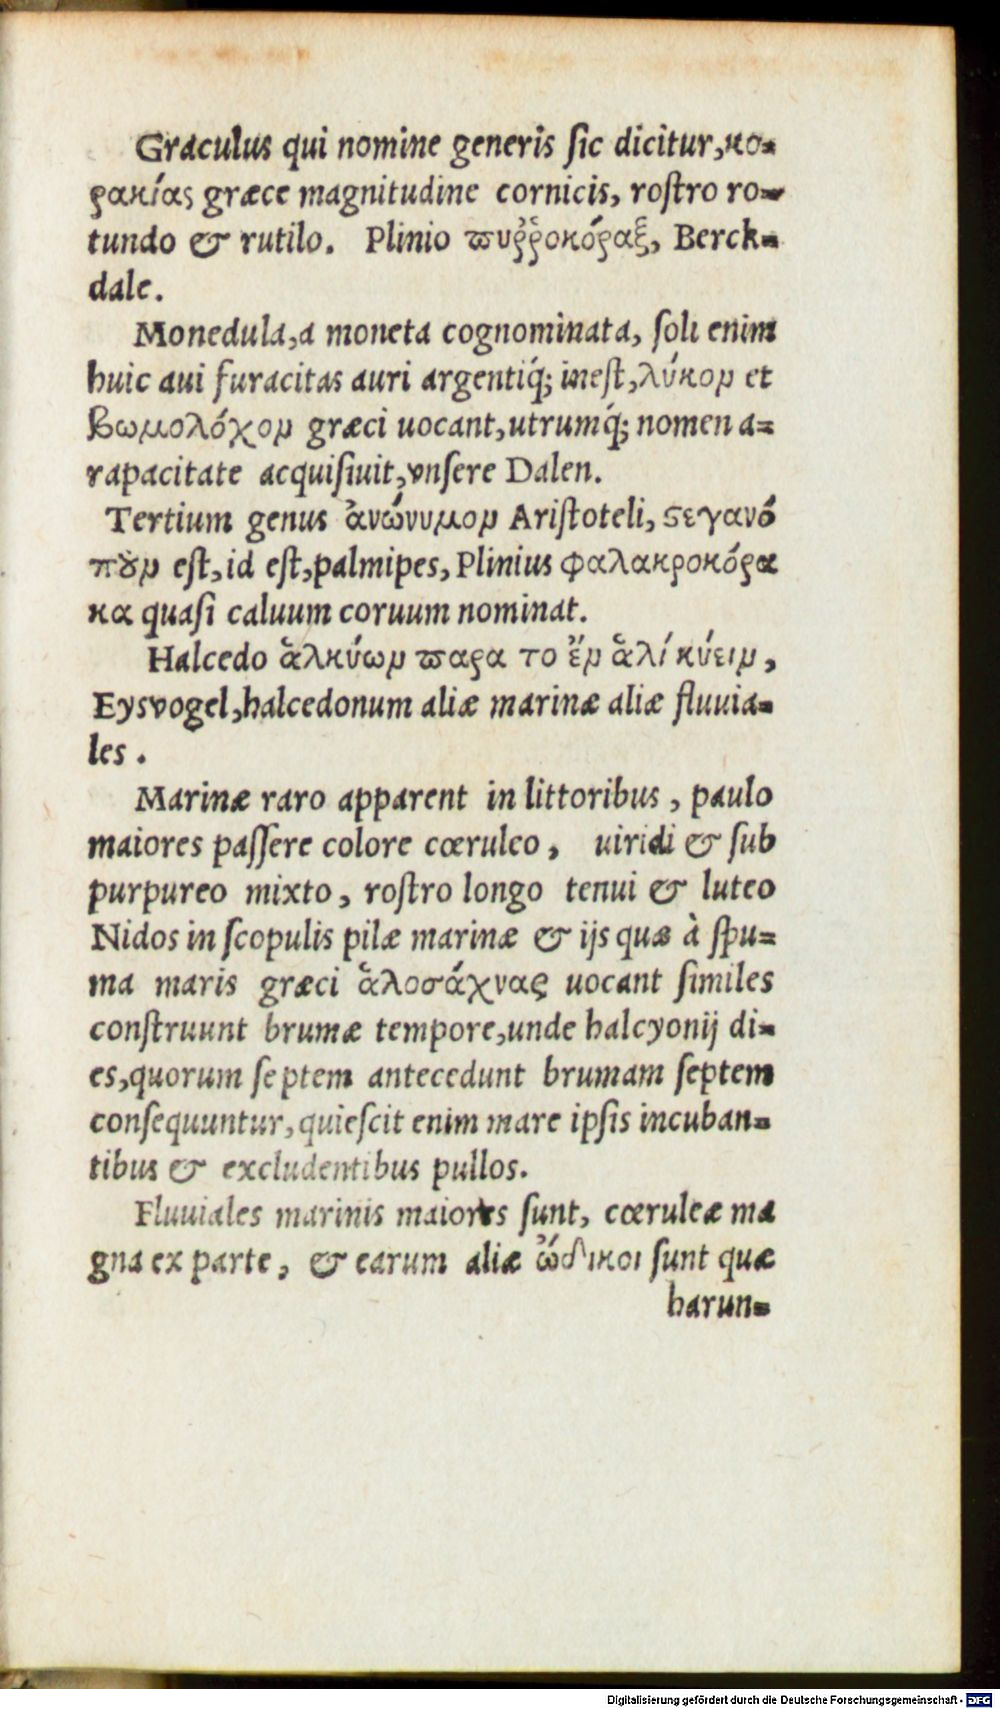 Graculus qui nomine generis ſic dicitur,κο-
ρακίας græce magnitudine cornicis, roſtro ro-
tundo & rutilo. Plinio ϖυῤῥοκόραξ, Berck-
dale.
Monedula,a moneta cognominata, ſoli enim
huic aui furacitas auri argentiq́; ineſt,λύκον et
βωμολόχον græci uocant,utrumq́; nomen a-
rapacitate acquiſiuit,vnſere Dalen.
Tertium genus ἀνώνυμον Ariſtoteli, ϛεγανό
πȣν eſt,id eſt,palmipes, Plinius φαλακροκόρα
κα quaſi caluum coruum nominat.
Halcedo ἁλκύων ϖαρα το ἐν ἁλί κύειν,
Eysvogel,halcedonum aliæ marinæ aliæ fluuia-
les.
Marinæ raro apparent in littoribus, paulo
maiores paſſere colore cœruleo, uiridi & ſub
purpureo mixto, roſtro longo tenui & luteo
Nidos in ſcopulis pilæ marinæ & ijs quæ à ſpu-
ma maris græci ἁλοσάχνας uocant ſimiles
conſtruunt brumæ tempore,unde halcyonij di-
es,quorum ſeptem antecedunt brumam ſeptem
conſequuntur,quieſcit enim mare ipſis incuban-
tibus & excludentibus pullos.
Fluuiales marinis maiores ſunt, cœruleæ ma
gna ex parte, & earum aliæ ᾤδικοι ſunt quæ
harun-
Digitalisierung gefördert durch die Deutsche Forschungsgemeinschaft - DFG